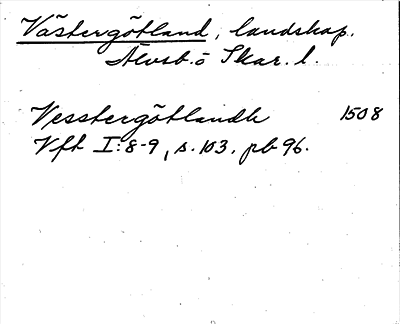 Västergötland, landskap.
Älvsb. o Skar. l.
Vesstergötlandh 1508
Vft I:8-9, s. 103. pb 96.